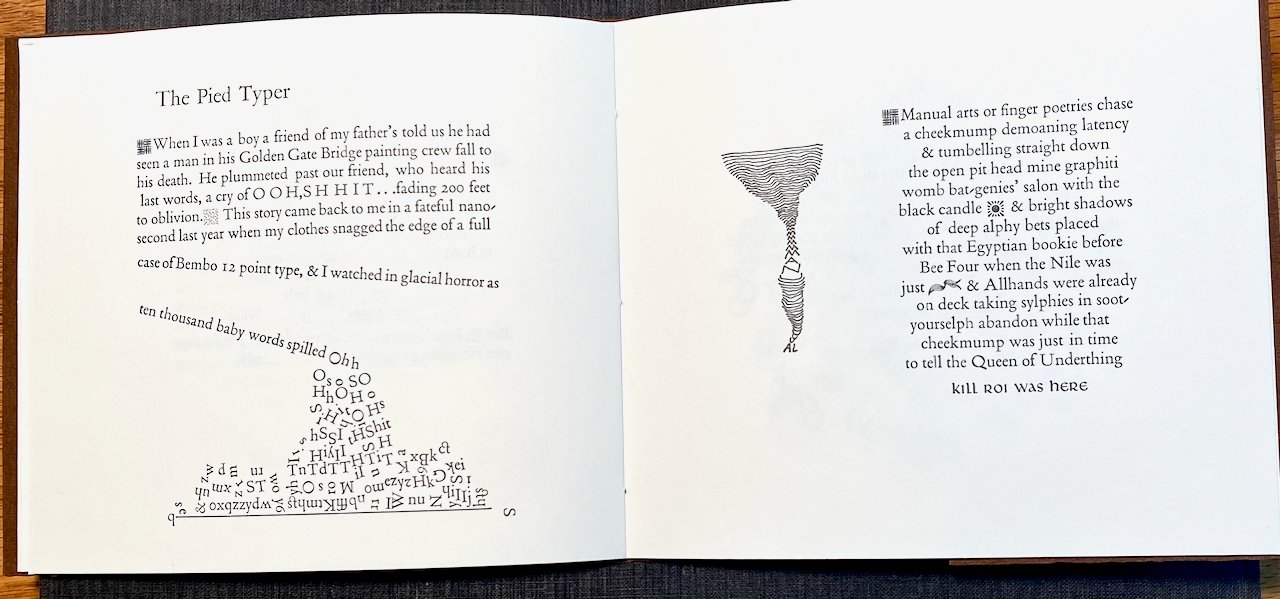 The Pied Typer
When I was a boy a friend of my father's told us he had
seen a man in his Golden Gate Bridge painting crew fall to
his death. He plummeted past our friend, who heard his
last words, a cry of O O H,S H H I T . . .fading 200 feet
to oblivion. This story came back to me in a fateful nano-
second last year when my clothes snagged the edge of a full
case of Bembo 12 point type, & I watched in glacial horror as
ten thousand baby words spilled Ohh
Manual arts or finger poetries chase
a cheekmump demoaning latency
& tumbelling straight down
the open pit head mine graphiti
womb bat-genies' salon with the
black candle & bright shadows
of deep alphy bets placed
with that Egyptian bookie before
Bee Four when the Nile was
just & Allhands were already
on deck taking sylphies in soot-
yourselph abandon while that
cheekmump was just in time
to tell the Queen of Underthing
kill roi was here
AL